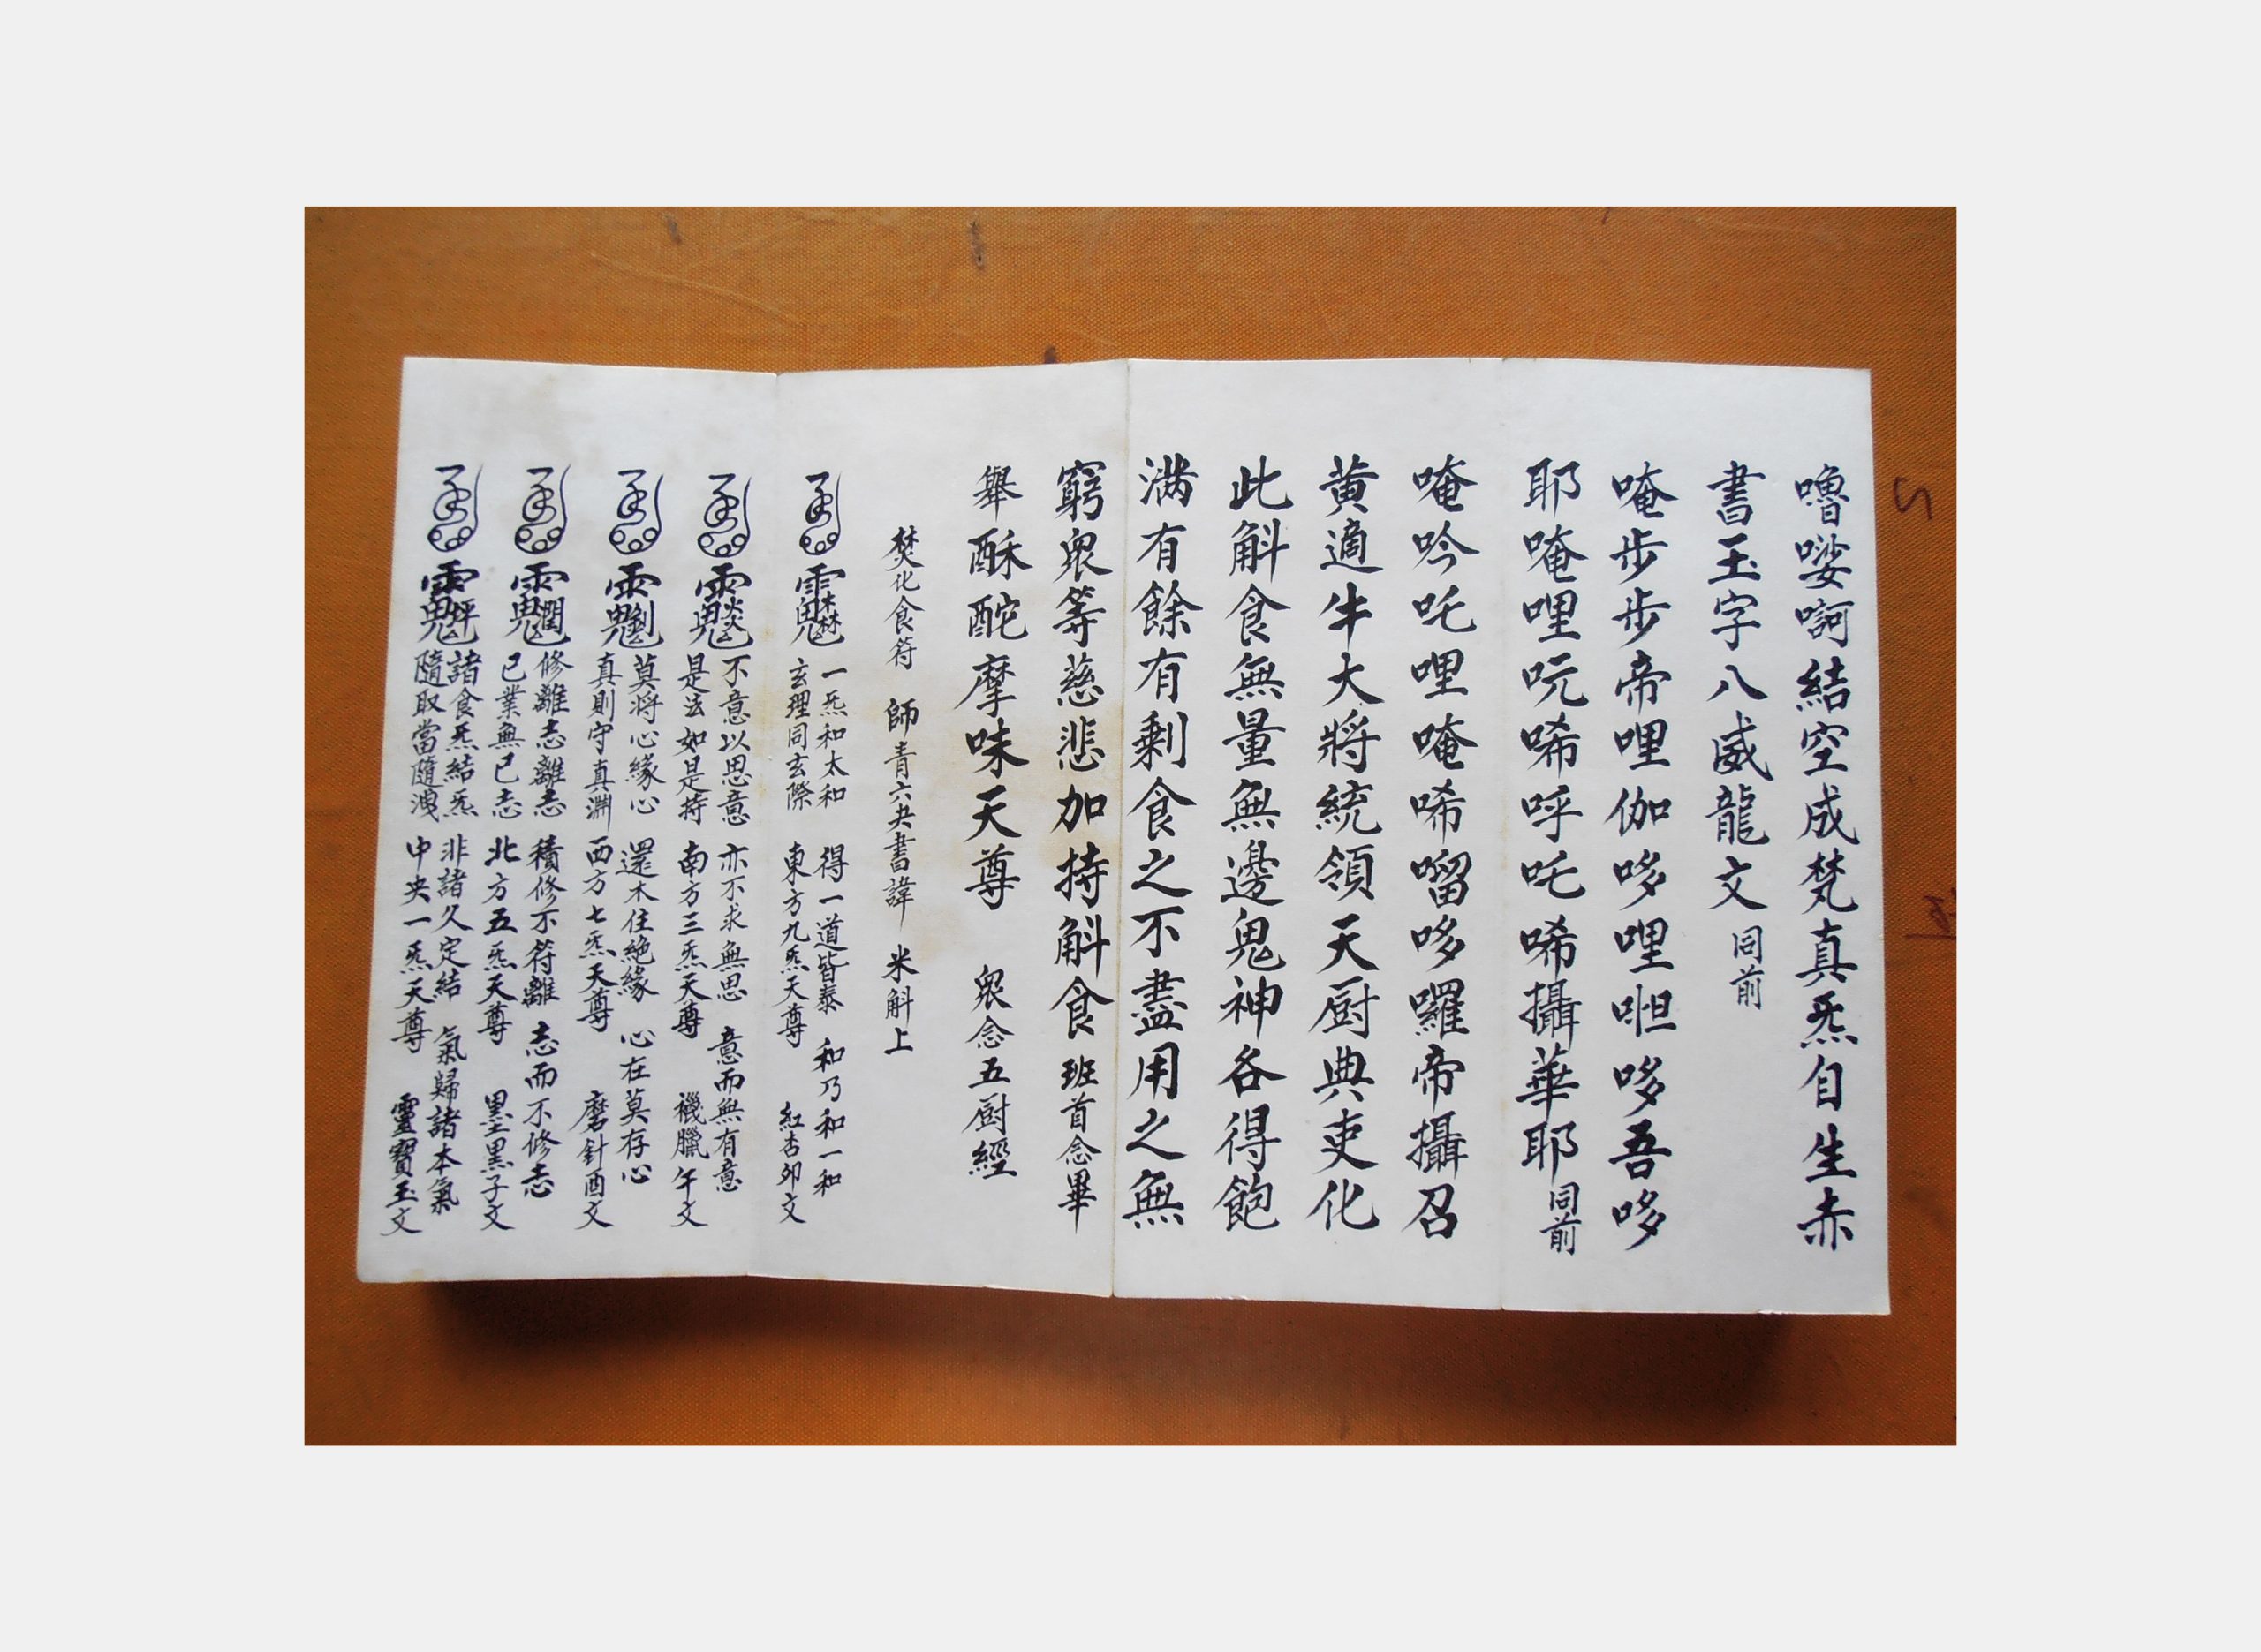 嚕娑訶結空成梵真炁自生赤
書玉字八威龍文 同前
唵步步帝哩伽哆哩呾哆吾哆
耶唵哩呍唏呼吒唏攝華耶 同前
唵吟吒哩唵唏㗜哆囉帝攝召
黄適牛大將統領天厨典吏化
此斛食無量無邊鬼神各得飽
满有餘有剩食之不盡用之無
窮眾等慈悲加持斛食 班首念畢
舉酥酡摩味天尊 眾念五厨經
焚化食符 師青六夬書諱 米斛上
一炁和太和 得一道皆泰 和乃和一和
玄理同玄際 東方九炁天尊 紅杏卯文
不意以思意 亦不求無思 意而無有意
是法如是持 南方三炁天尊 襪臘午文
莫將心緣心 還木住絶緣 心在莫存心
真則守真淵 西方七炁天尊 磨針酉文
修離志離志 積修不符離 志而不修志
已業無已志 北方五炁天尊 墨黑子文
諸食炁結炁 非諸久定結 氣歸諸本氣
隨取當隨洩 中央一炁天尊 靈寶玉文